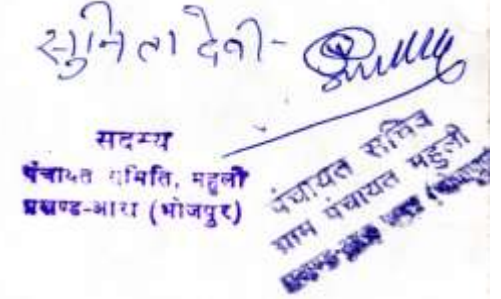 सुनिता देवी-
सदस्य
पंचायत समिति, महुली
प्रखण्ड-आरा (भोजपुर)
पंचायत सचिव
ग्राम पंचायत महुली